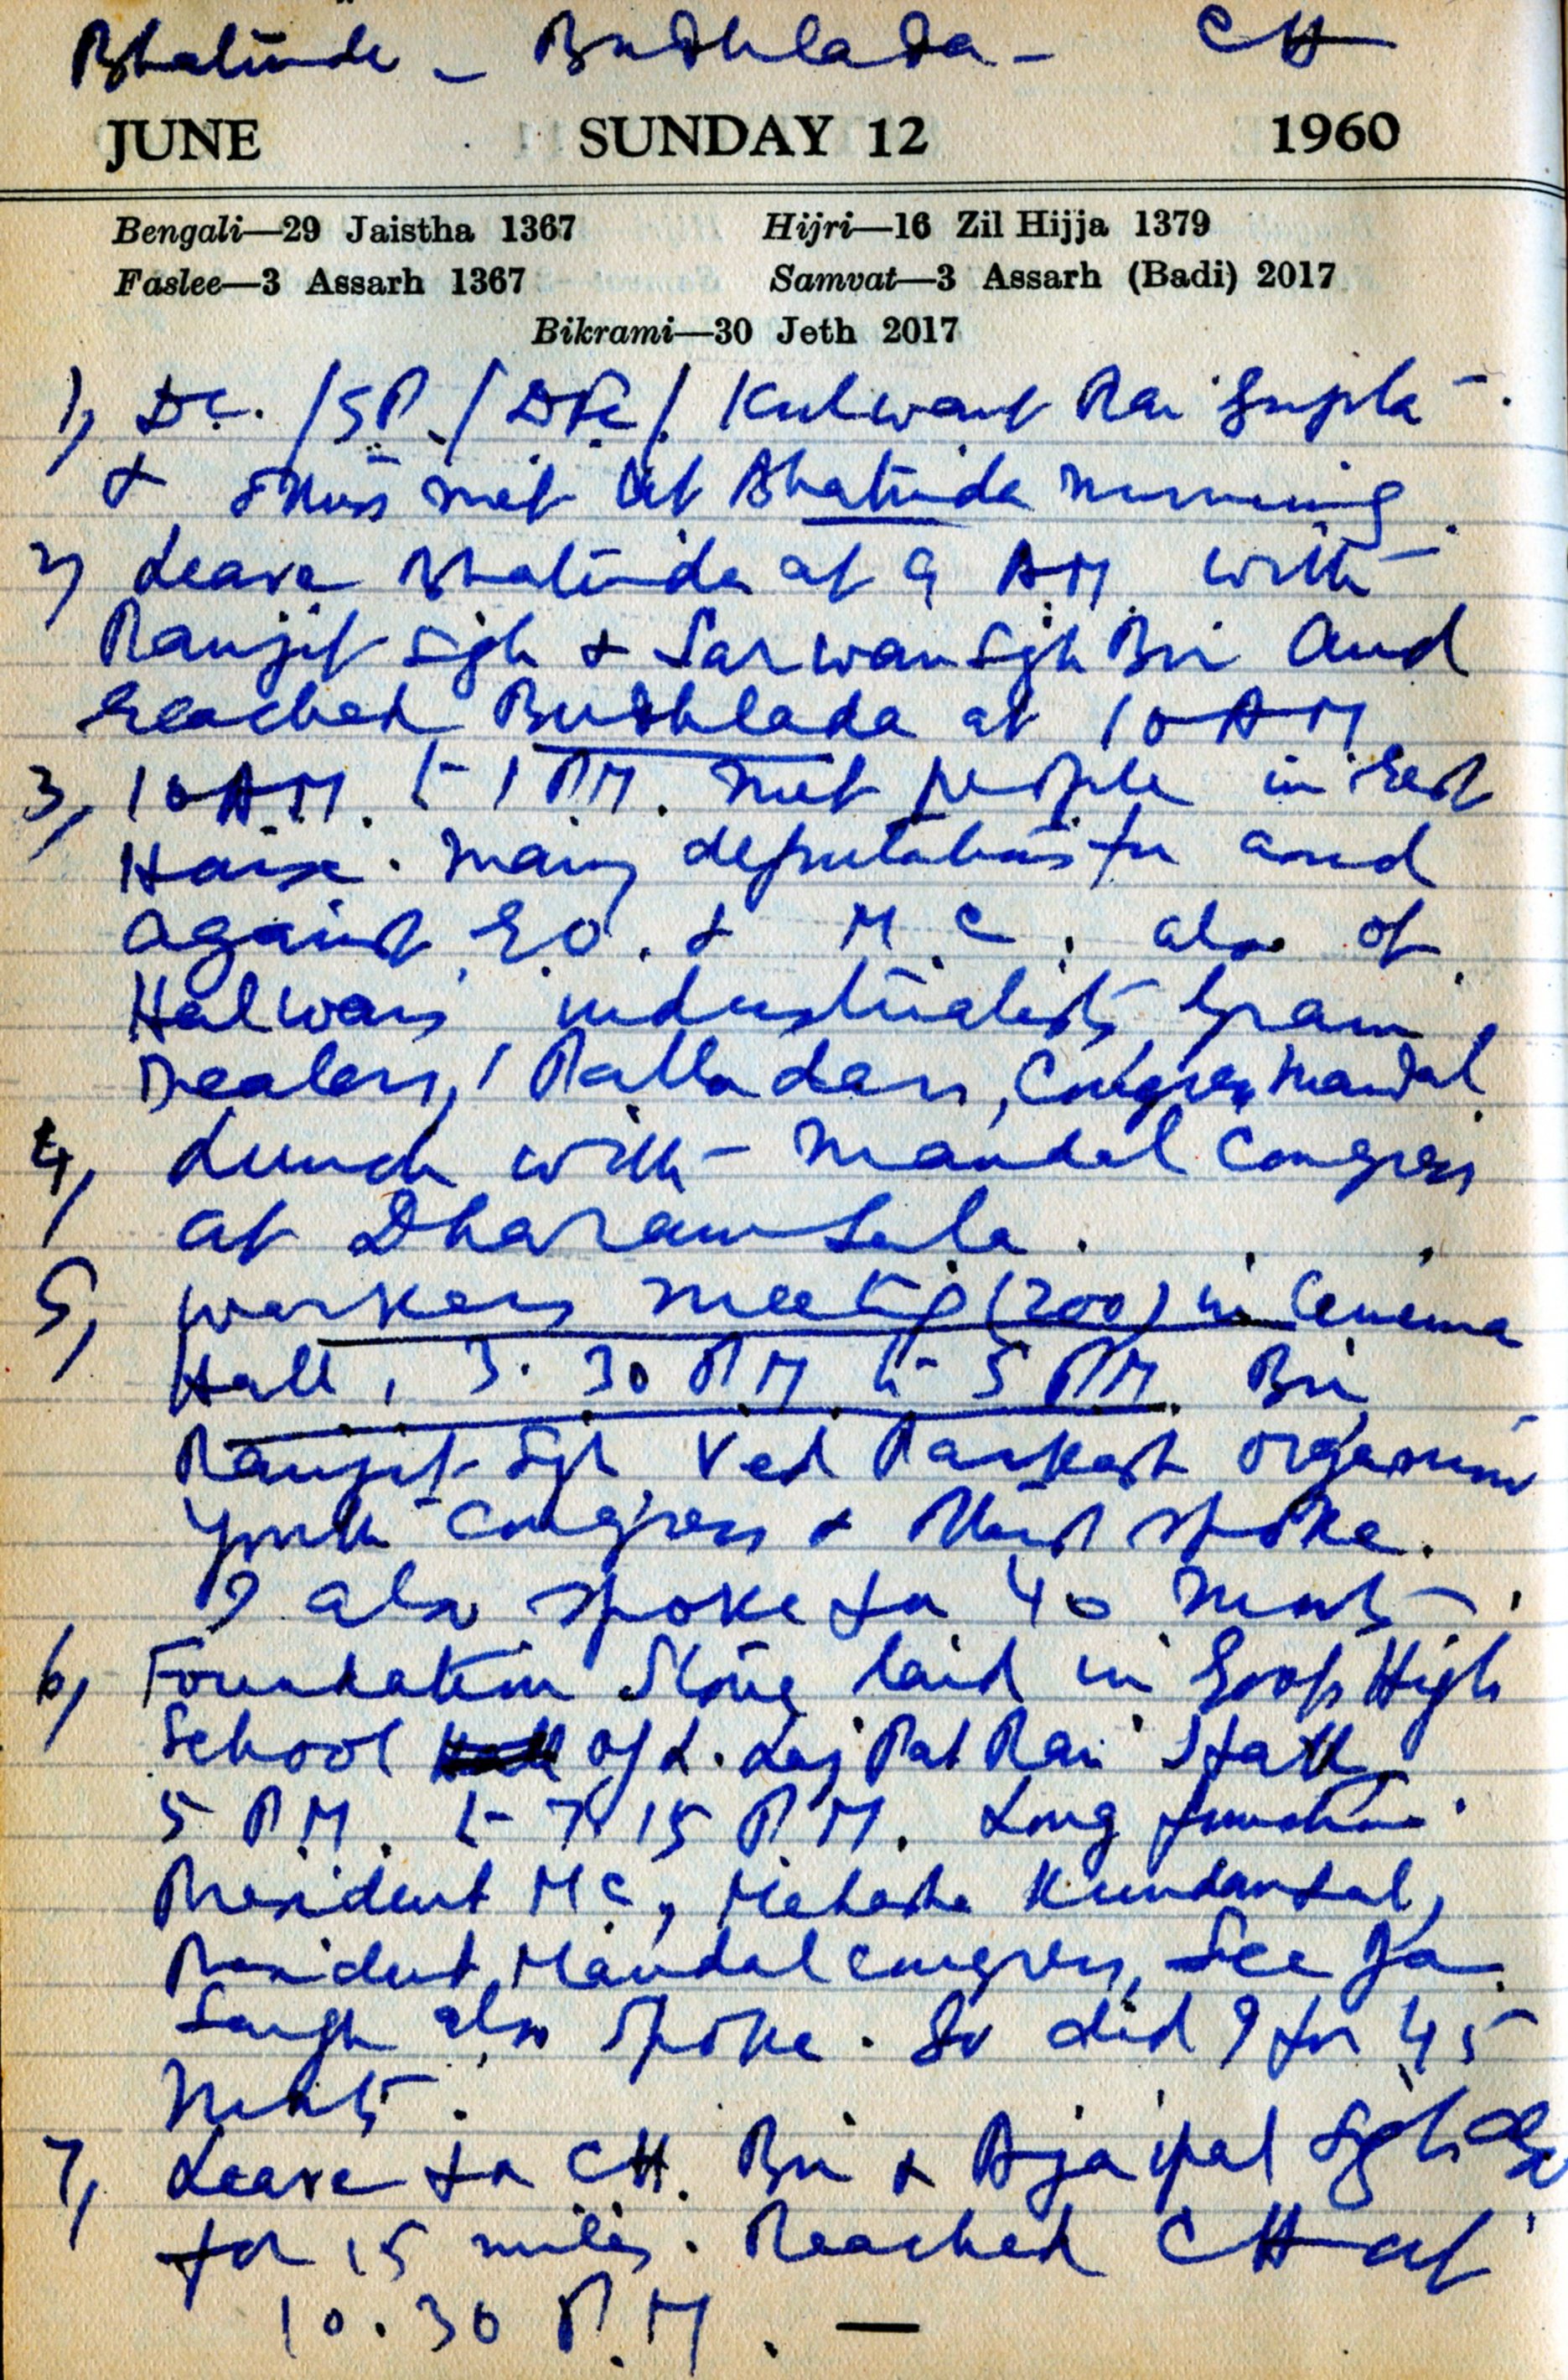 Bhatinda - Budhlada - CH
JUNE SUNDAY 12 1960
Bengali—29 Jaistha 1367 Hijri—16 Zil Hijja 1379
Faslee—3 Assarh 1367 Samvat—3 Assarh (Badi) 2017
Bikrami—30 Jeth 2017
1, DC. /SP./ Kulwant Rai Gupta
& others met at Bhatinda morning.
2, Leave Bhatinda at 9 AM with
Ranjit Sgh & Sarwan Sgh Bir and
reached Budhlada at 10 AM
3, 10 AM. to 1 PM. met people in rest
House. Many deputations for and
against E.O. & M.C. also of
Halwais, industrialists, Grain
Dealers, Palledars, Congress Mandal
4, Lunch with Mandal Congress
at Dharamsala.
5, workers meeting (200) in Cenema
Hall, 3.30 PM to 5 PM. Bir
Ranjit Sgh Ved Parkash
Youth Congress & spoke.
I also spoke for 40 mnts.
6, Foundation Stone laid in High
School of L. Laj Pat Rai
5 PM. to 7.15 PM. Long function.
President MC, Mahasha Kundanlal,
President, Mandal Congress, See Ja
Sangh also spoke. So did I for 45
mnts.
7, Leave for CH. Bir & Ajaipal Sgh also
for 15 miles. Reached CH at
10.30 P.M. —